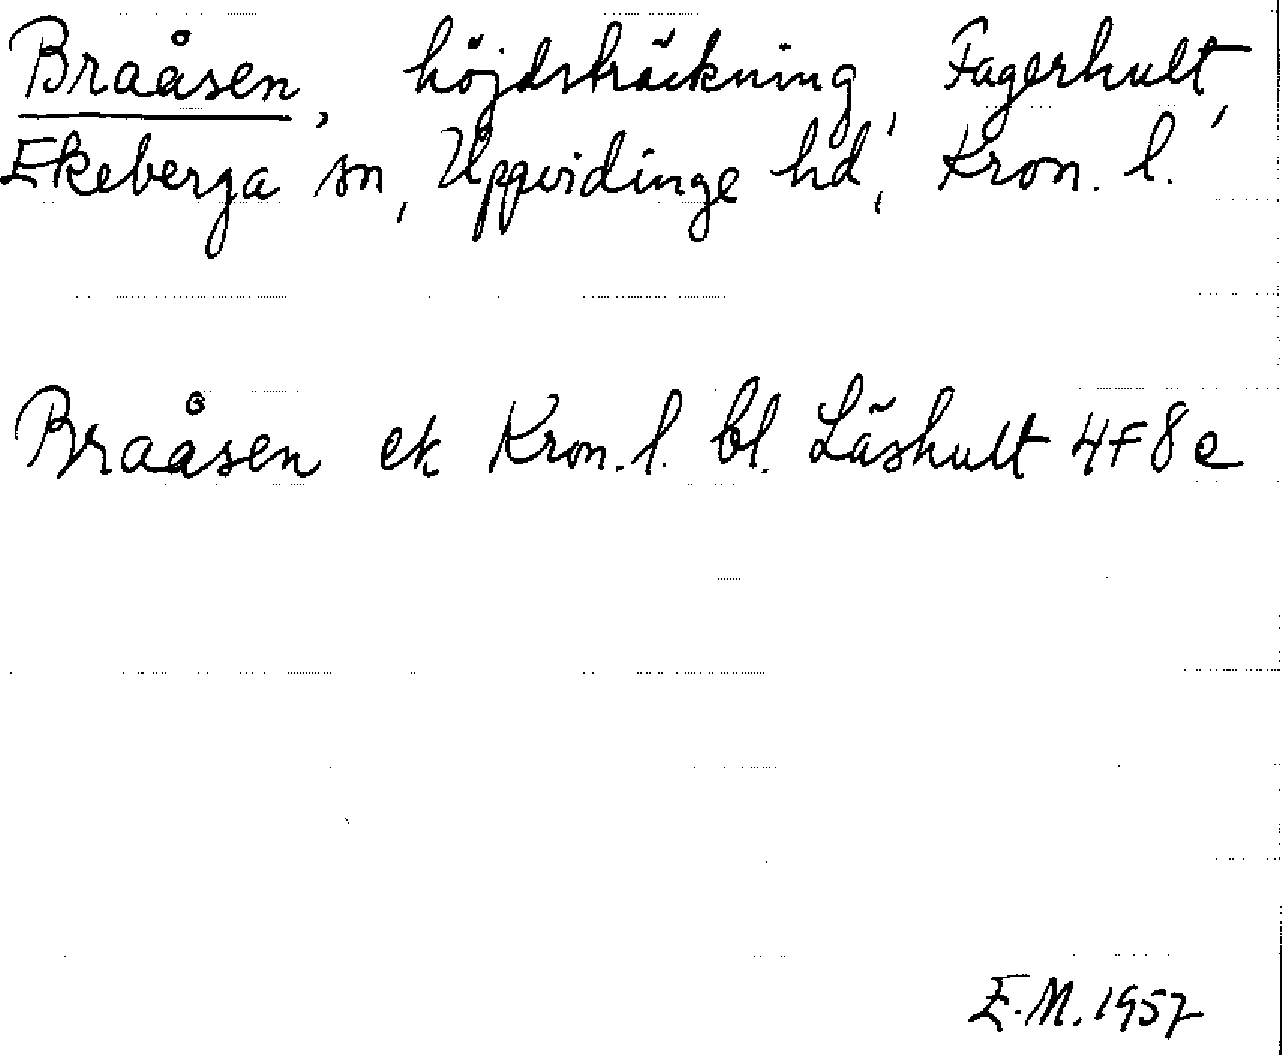 Braåsen, höjdsträckning, Fagerhult,
Ekeberga sn, Uppvidinge hd, Kron. l.
Braåsen ek Kron. l. bl. Låshult 4F8e
E.M. 1957